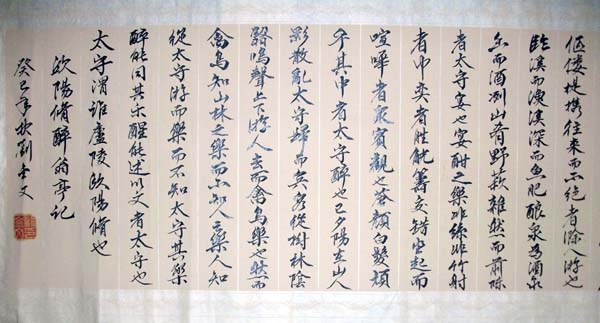 傴僂提攜往來而不絕者滁人游也
臨溪而漁溪深而魚肥釀泉為酒泉
而酒洌山肴野蔌雜然而前陳
者太守宴也宴酣之樂非絲非竹射
者中奕者勝觥籌交錯坐起而
喧嘩者眾賓觀也蒼顏白髮頹
乎其中者太守醉也已夕陽在山人
影散亂太守歸而賓客從樹林陰
翳鳴聲上下游人去而禽鳥樂也然而
禽鳥知山林之樂而不知人之樂人知
從太守游而樂而不知太守其樂
醉能同其樂醒能述以文者太守也
太守謂誰廬陵歐陽脩也
歐陽脩醉翁亭記
癸巳年秋劉文